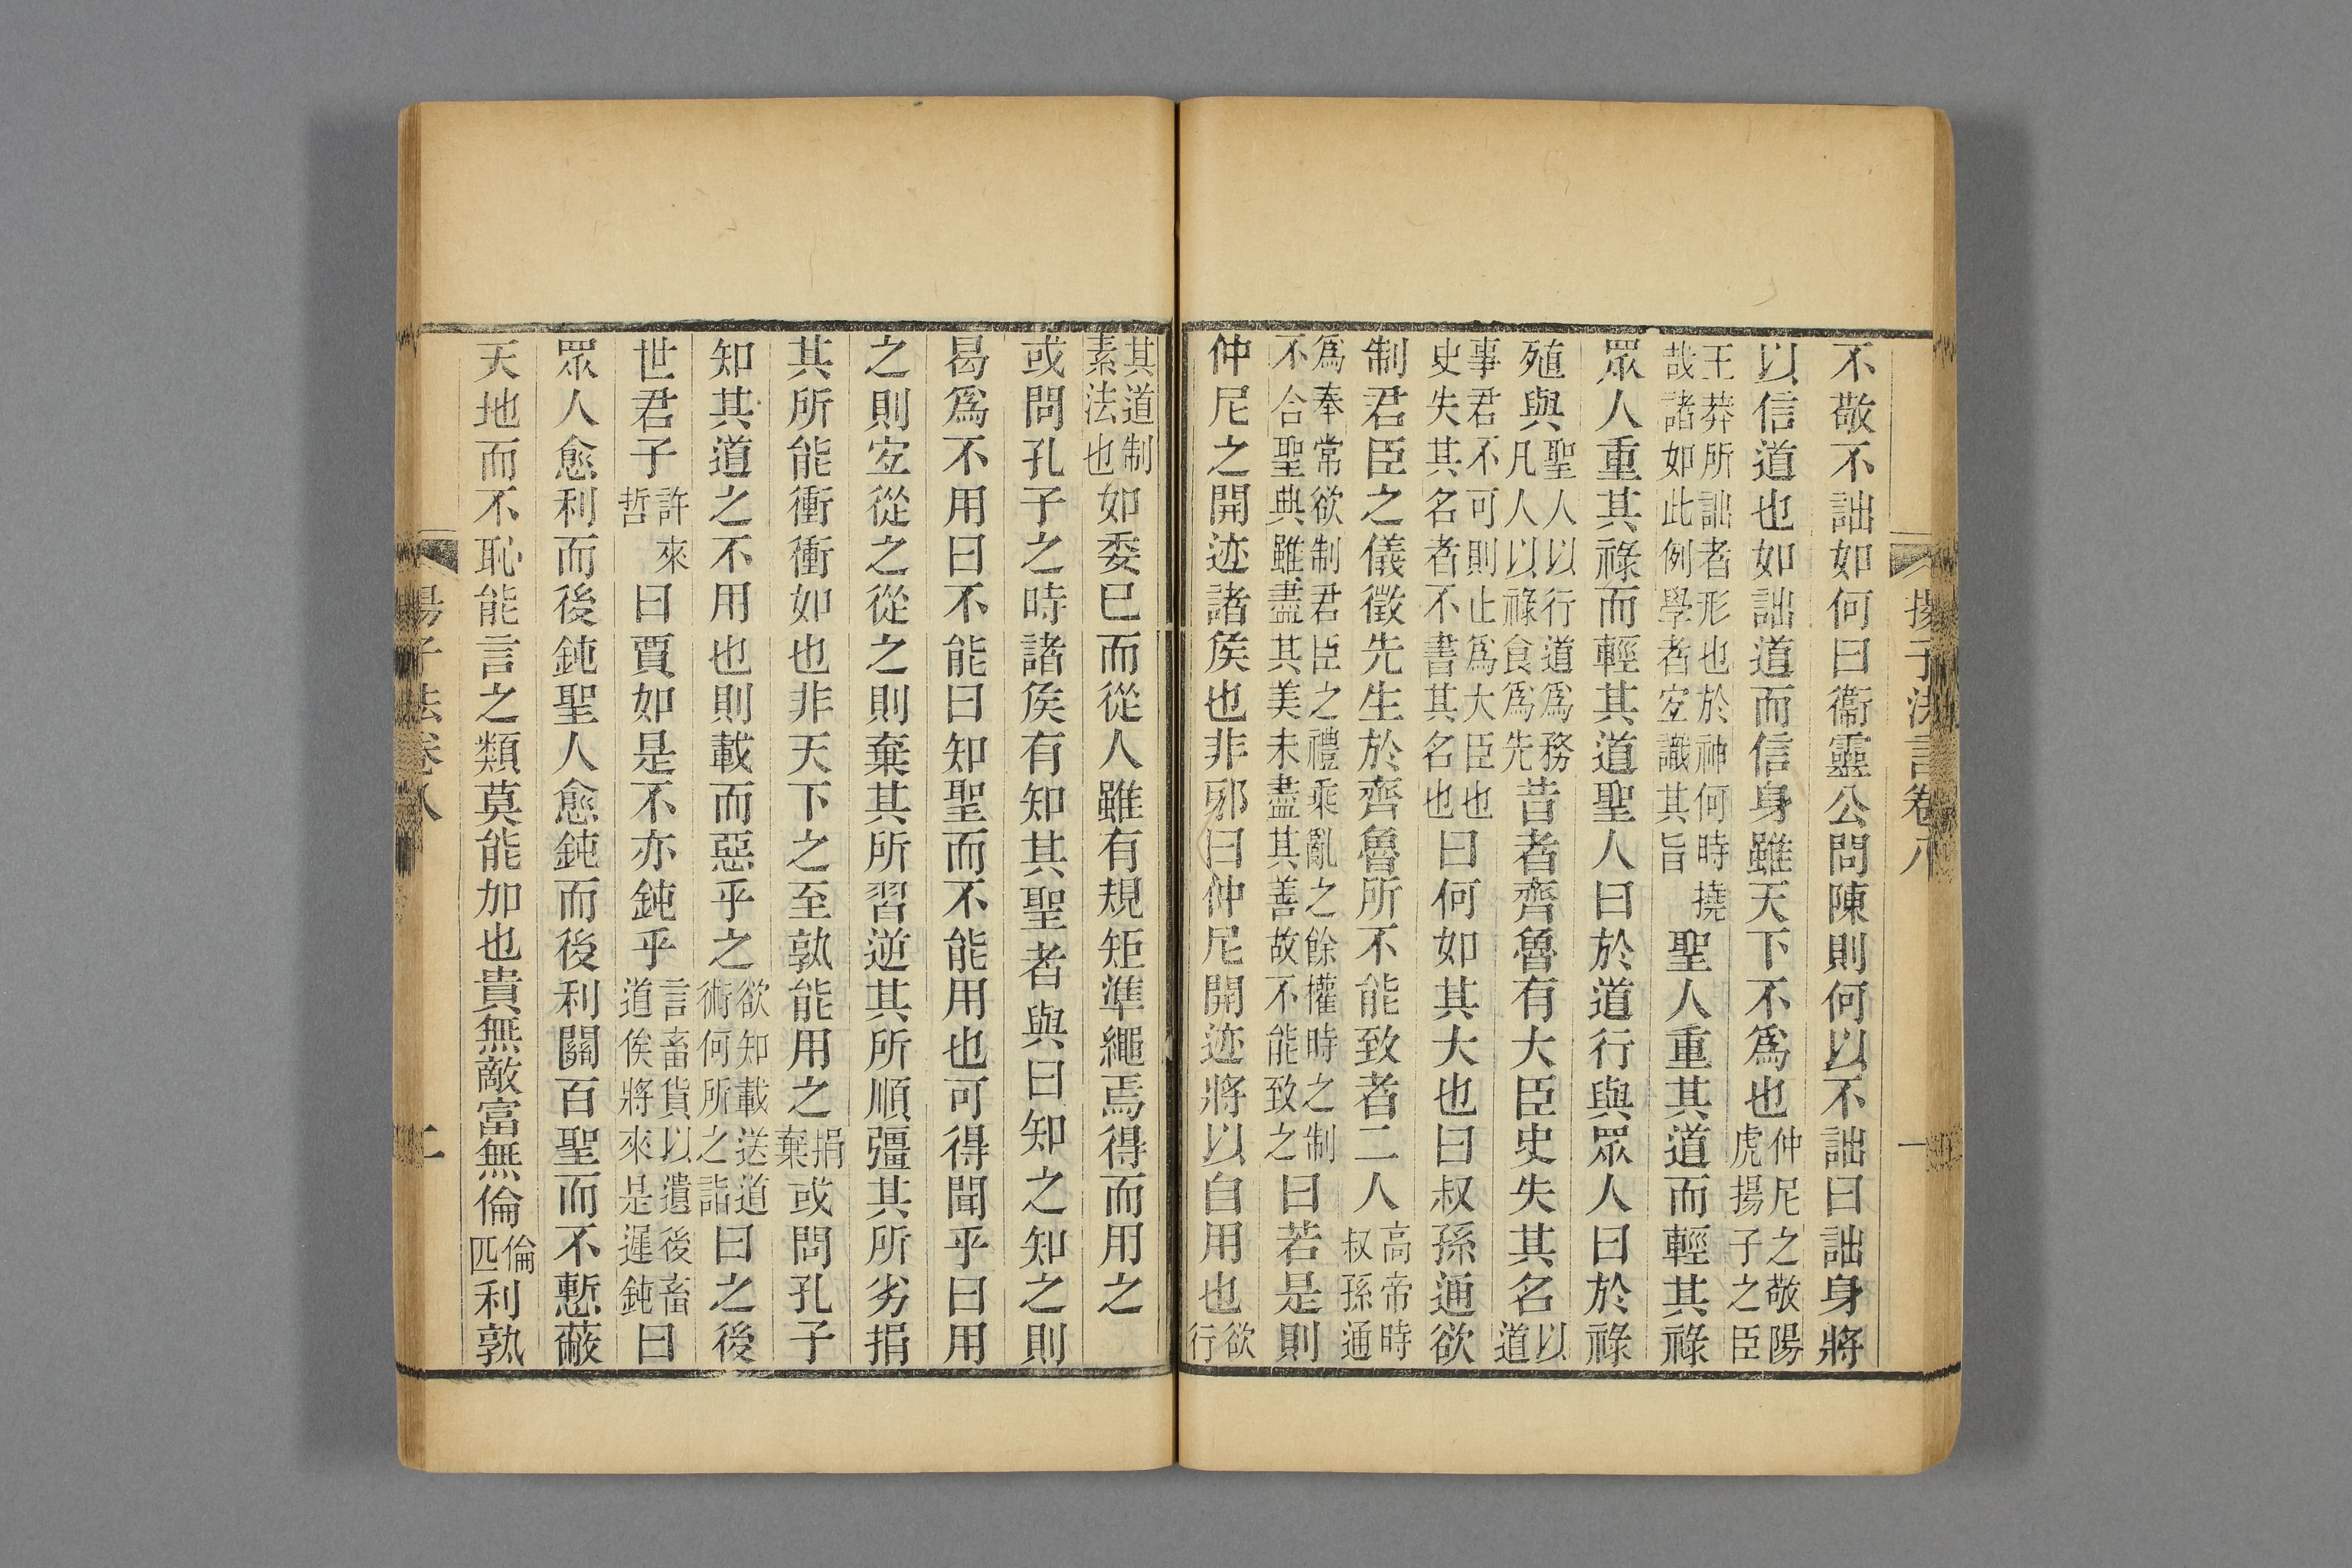 揚子法言卷八
一
不敬不詘如何曰衞靈公問陳則何以不詘曰詘身將
以信道也如詘道而信身雖天下不爲也仲尼之敬陽虎揚子之臣
王莽所詘者形也於神何時撓哉諸如此例學者㝎識其旨聖人重其道而輕其祿
眾人重其祿而輕其道聖人曰於道行與眾人曰於祿
殖與聖人以行道爲務凡人以祿食爲先昔者齊魯有大臣史失其名以道
事君不可則止爲大臣也史失其名者不書其名也曰何如其大也曰叔孫通欲
制君臣之儀徵先生於齊魯所不能致者二人高帝時叔孫通
爲奉常欲制君臣之禮乘亂之餘權時之制不合聖典雖盡其美未盡其善故不能致之曰若是則
仲尼之開迹諸矦也非邪曰仲尼開迹將以自用也欲行
其道制素法也如委已而從人雖有規矩準繩焉得而用之
或問孔子之時諸矦有知其聖者與曰知之知之則
曷爲不用曰不能曰知聖而不能用也可得聞乎曰用
之則㝎從之從之則棄其所習逆其所順彊其所劣捐
其所能衝衝如也非天下之至孰能用之捐棄或問孔子
知其道之不用也則載而惡乎之欲知載送道術何所之詣曰之後
世君子許來哲曰賈如是不亦鈍乎言畜貨以遺後畜道俟將來是遲鈍曰
眾人愈利而後鈍聖人愈鈍而後利關百聖而不慙蔽
天地而不恥能言之類莫能加也貴無敵富無倫倫匹利孰
揚子法卷八
二